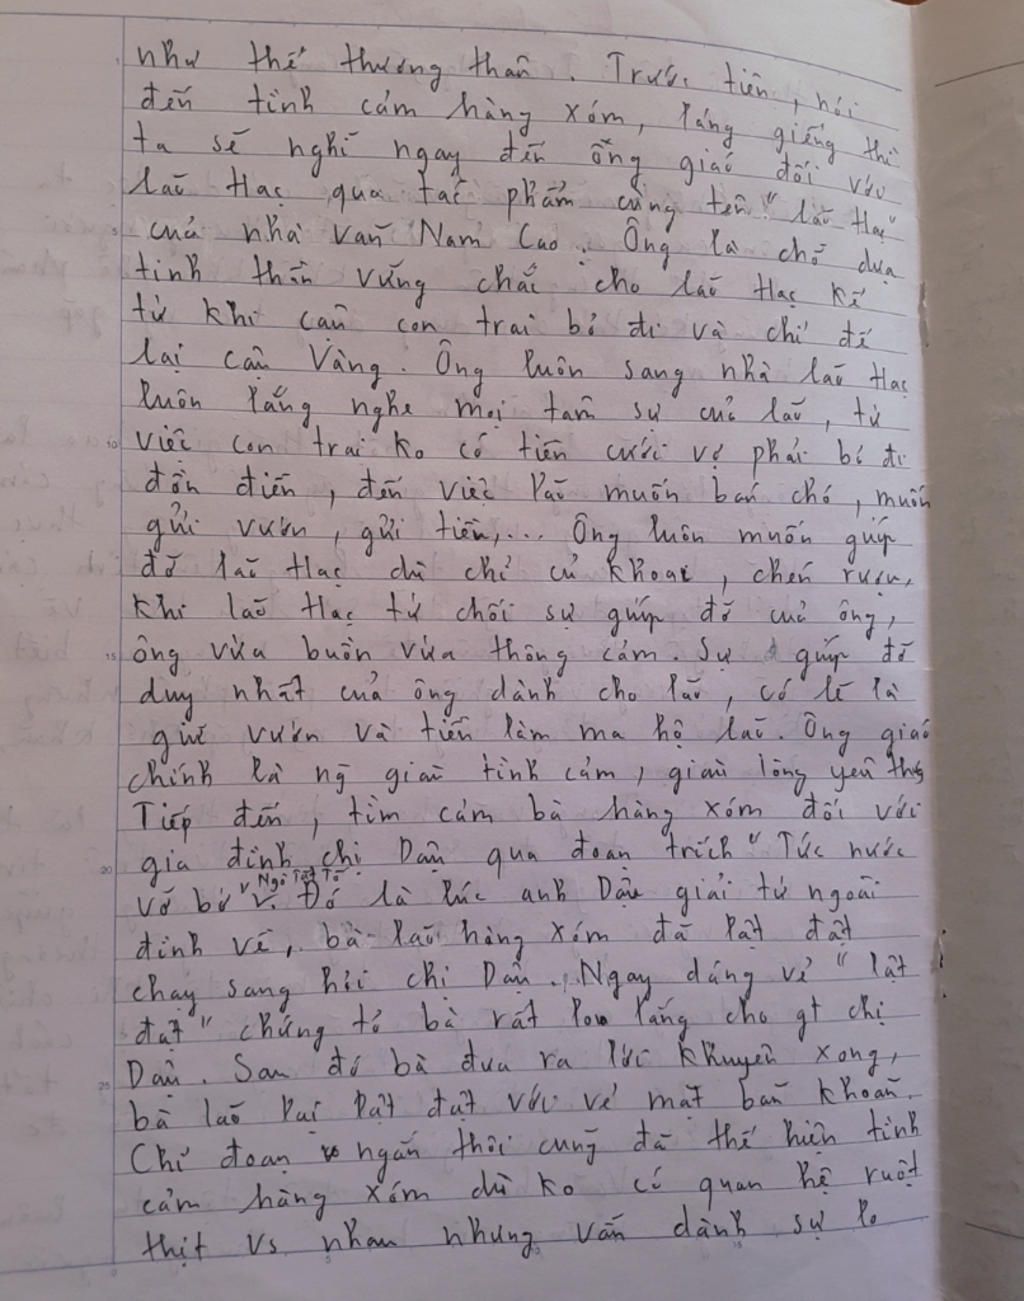 như thể thương thân. Trước tiên, nói
đến tình cảm hàng xóm, láng giềng thì
ta sẽ nghĩ ngay đến ông giáo đối với
lão Hạc qua tác phẩm cùng tên "lão Hạc"
của nhà văn Nam Cao. Ông là chỗ dựa
tinh thần vững chắc cho lão Hạc kể
từ khi cậu con trai bỏ đi và chỉ để
lại cậu Vàng. Ông luôn sang nhà lão Hạc
luôn lắng nghe mọi tâm sự của lão, từ
việc con trai ko có tiền cưới vợ phải bỏ đi
đồn điền, đến việc lão muốn bán chó, muốn
gửi vườn, gửi tiền,... Ông luôn muốn giúp
đỡ lão Hạc dù chỉ củ khoai, chén rượu,
khi lão Hạc từ chối sự giúp đỡ của ông,
ông vừa buồn vừa thông cảm. Sự giúp đỡ
duy nhất của ông dành cho lão, có lẽ là
giữ vườn và tiền làm ma hộ lão. Ông giáo
chính là ng giàu tình cảm, giàu lòng yêu thg
Tiếp đến, tìm cảm bà hàng xóm đối với
gia đình chị Dậu qua đoạn trích "Tức nước
vỡ bờ" Ngô Tất Tố. Đó là lúc anh Dậu giải từ ngoài
đình về, bà lão hàng xóm đã lật đật
chạy sang hỏi chị Dậu. Ngay dáng vẻ "lật
đật" chứng tỏ bà rất lo lắng cho gđ chị
Dậu. Sau đó bà đưa ra lời khuyên xong,
bà lão lại lật đật với vẻ mặt băn khoăn.
Chỉ đoạn ngắn thôi cũng đã thể hiện tình
cảm hàng xóm dù ko có quan hệ ruột
thịt vs nhau nhưng vẫn dành sự lo